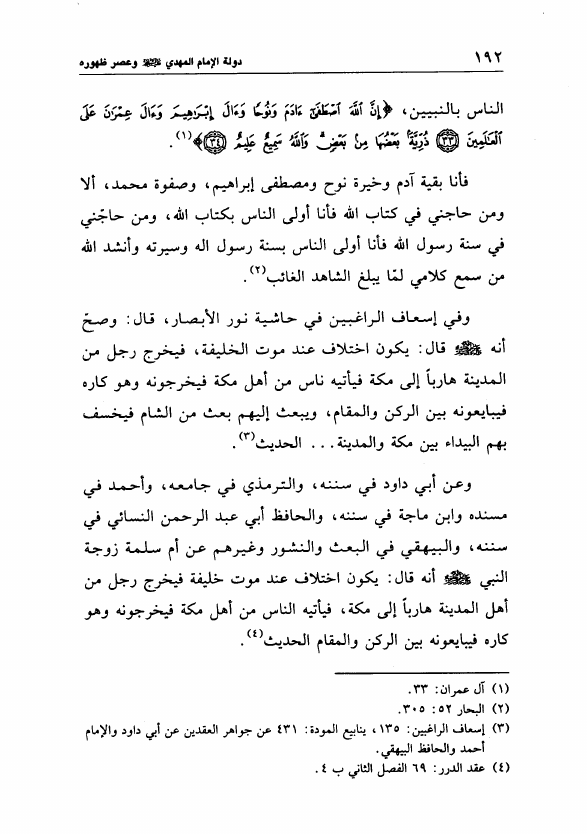 ١٩٢
دولة الإمام المهدي ﷺ وعصر ظهوره
الناس بالنبيين، ﴿إِنَّ اللَّهَ اصْطَفَى ءَادَمَ وَنُوحًا وَءَالَ إِبْرَاهِيمَ وَءَالَ عِمْرَانَ عَلَى
الْعَالَمِينَ ﴿٣٣﴾ ذُرِّيَّةً بَعْضُهَا مِنْ بَعْضٍ وَاللَّهُ سَمِيعٌ عَلِيمٌ ﴿٣٤﴾﴾(١).
فأنا بقية آدم وخيرة نوح ومصطفى إبراهيم، وصفوة محمد، ألا
ومن حاجني في كتاب الله فأنا أولى الناس بكتاب الله، ومن حاجّني
في سنة رسول الله فأنا أولى الناس بسنة رسول اله وسيرته وأنشد الله
من سمع كلامي لمّا يبلغ الشاهد الغائب(٢).
وفي إسعاف الراغبين في حاشية نور الأبصار، قال: وصحّ
أنه ﷺ قال: يكون اختلاف عند موت الخليفة، فيخرج رجل من
المدينة هارباً إلى مكة فيأتيه ناس من أهل مكة فيخرجونه وهو كاره
فيبايعونه بين الركن والمقام، ويبعث إليهم بعث من الشام فيخسف
بهم البيداء بين مكة والمدينة... الحديث(٣).
وعن أبي داود في سننه، والترمذي في جامعه، وأحمد في
مسنده وابن ماجة في سننه، والحافظ أبي عبد الرحمن النسائي في
سننه، والبيهقي في البعث والنشور وغيرهم عن أم سلمة زوجة
النبي ﷺ أنه قال: يكون اختلاف عند موت خليفة فيخرج رجل من
أهل المدينة هارباً إلى مكة، فيأتيه الناس من أهل مكة فيخرجونه وهو
كاره فيبايعونه بين الركن والمقام الحديث(٤).
(١) آل عمران: ٣٣.
(٢) البحار ٥٢: ٣٠٥.
(٣) إسعاف الراغبين: ١٣٥، ينابيع المودة: ٤٣١ عن جواهر العقدين عن أبي داود والإمام
أحمد والحافظ البيهقي.
(٤) عقد الدرر: ٦٩ الفصل الثاني ب ٤.